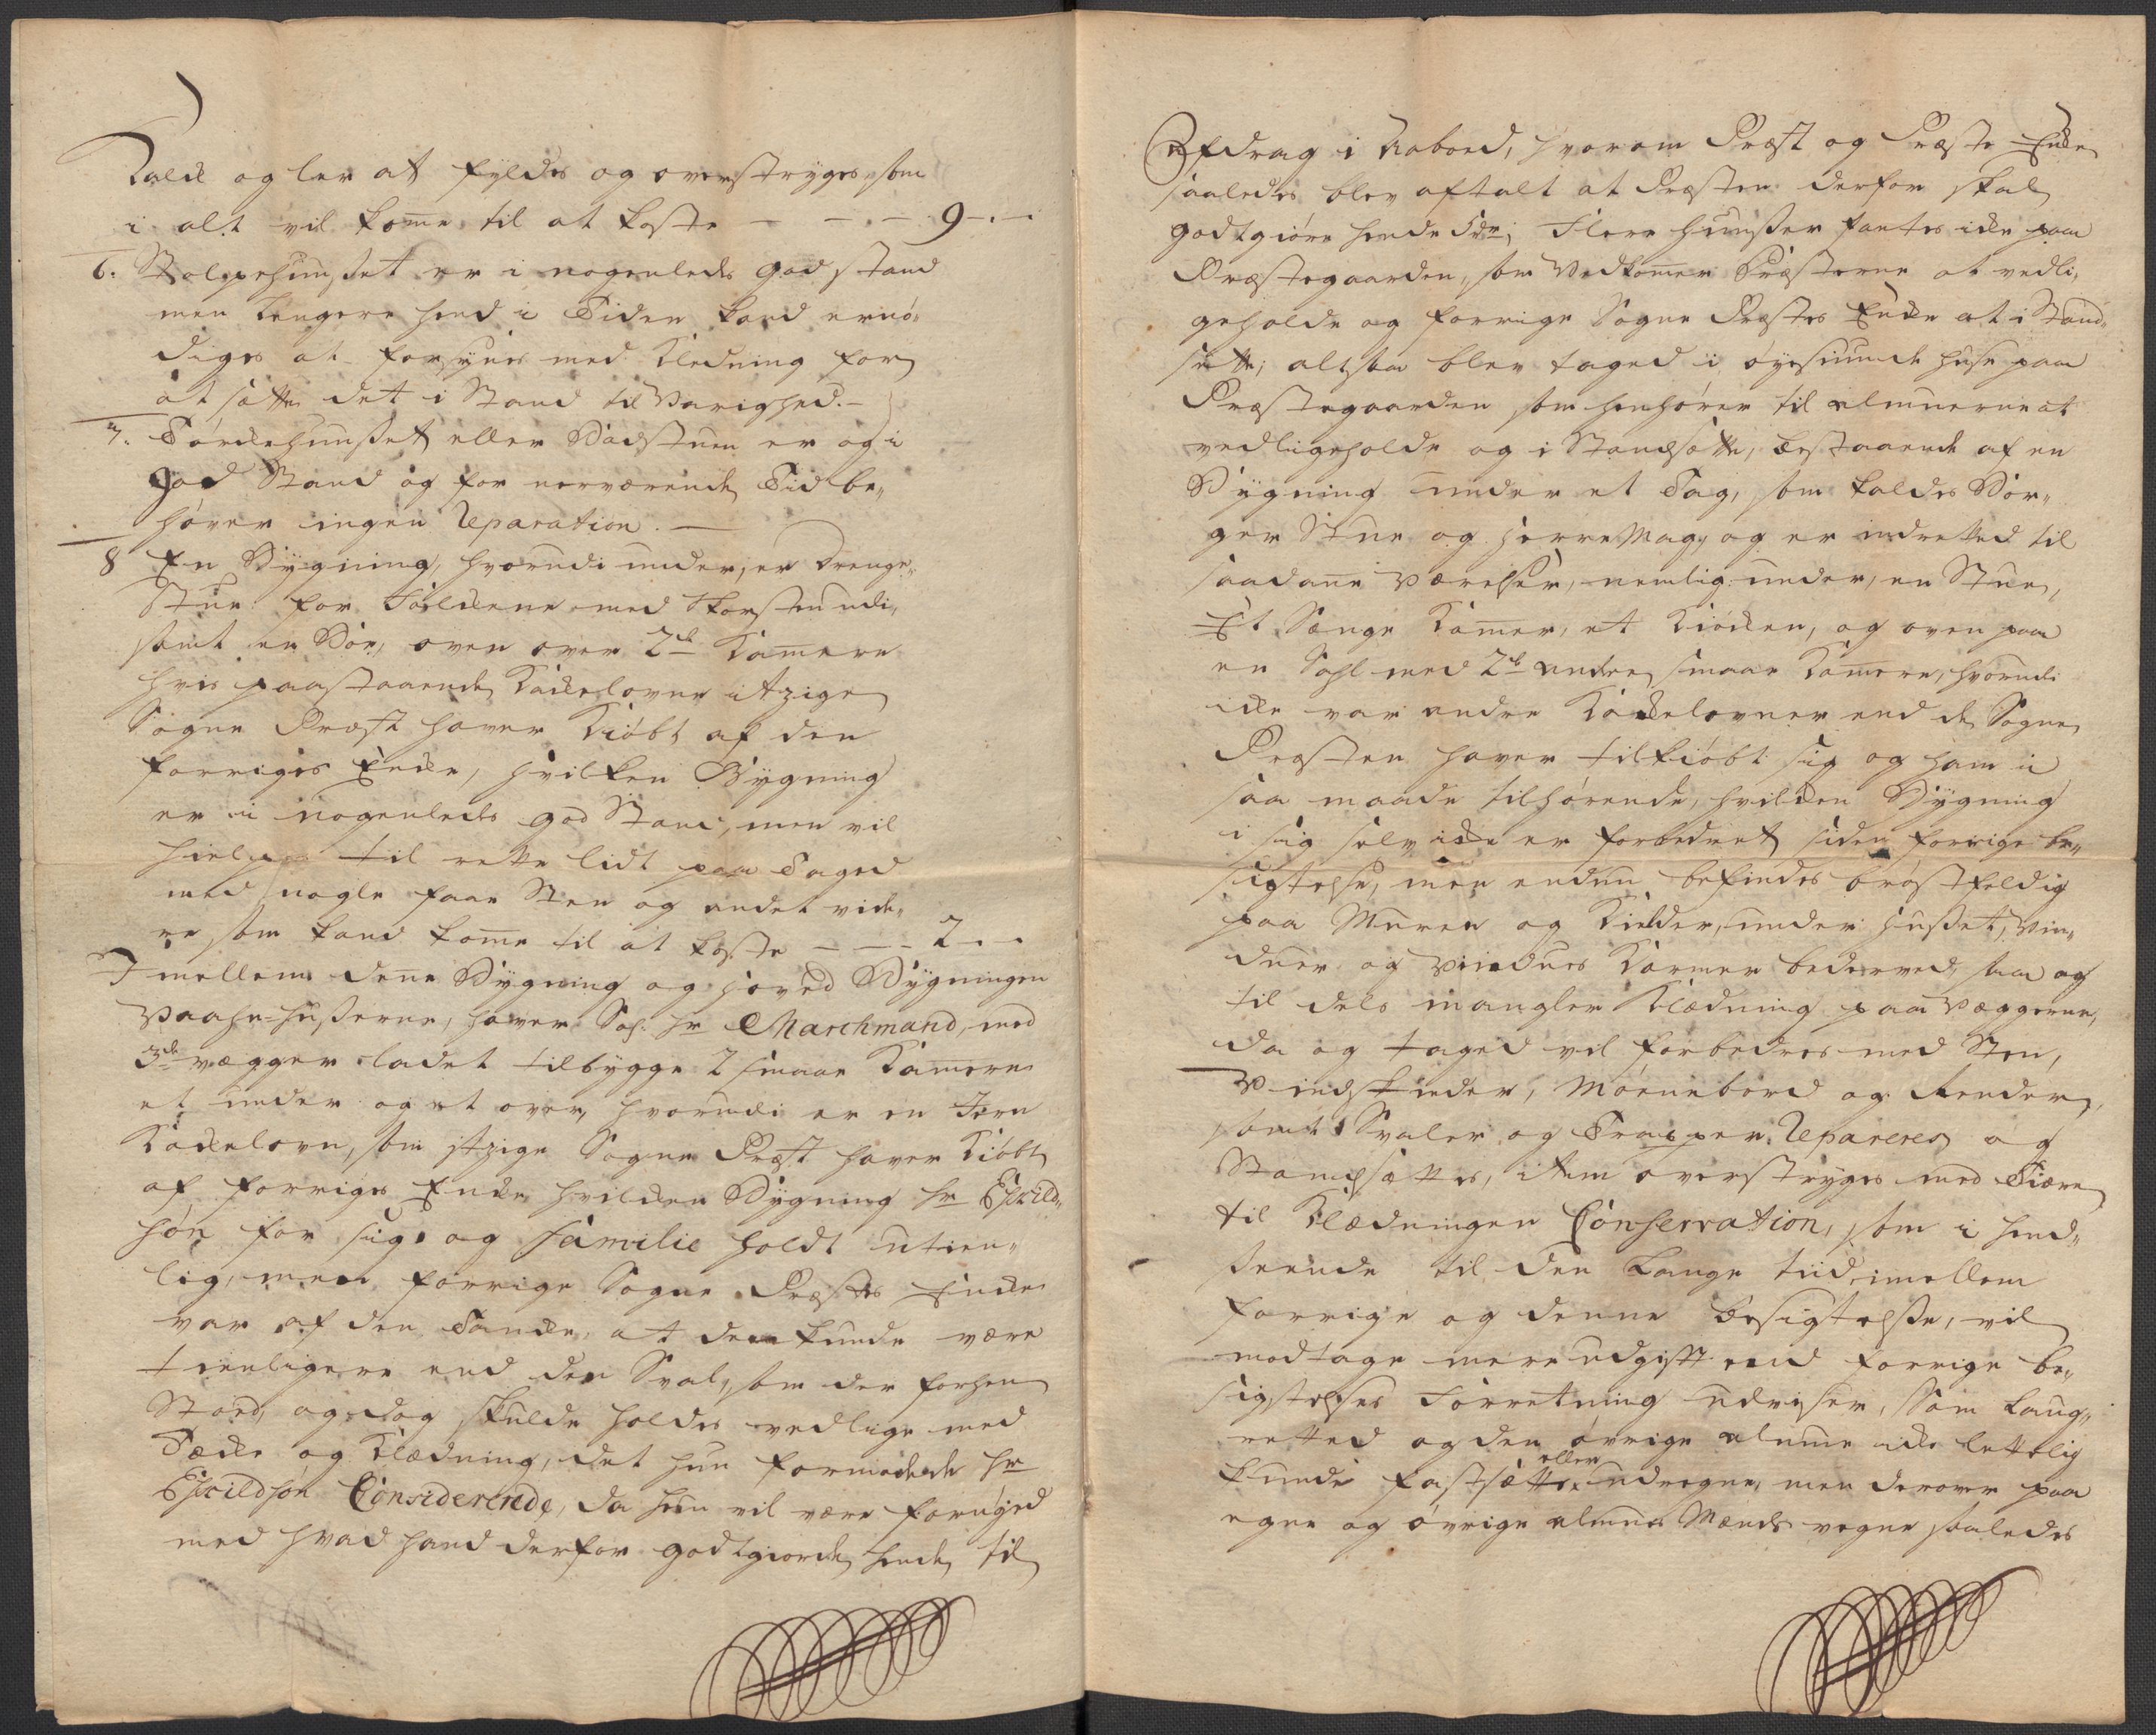 Kalck og ler at fyldes og overstryges, som
i alt vil kome til at koste — — . — 9 — . —
6: Stolpehuuset er i nogenledes god stand
men lengere hend i Tiden kand ernö-
diges at forsynes med Kledning for
at sætte det i Stand til Varighed. —
7. Törckehuuset eller Badstuen er og i
god Stand og for nerværende Tid be-
höver ingen Reparation. —
8 En Bygning, hvorudi under, er Drenge-
Stue for Tolckene med Skorsten udi,
samt en Bör, oven over 2de Kamere
hvis paastaaende Kackelovne itzige
Sogne Præst haver kiöbt af den
forriges Encke, hvilken Bygning
er i nogenledes god Stand, men vil
hielpes til rette lidt paa Taged
med nogle faae Sten og andet vide-
re, som kand kome til at koste — — — 2 . — .
Imellem dene Bygning og Hoved Bygningen
Vaahnehuserne, haver Sal: Hr Marchmand, med
3de vægger ladet tilbygge 2 smaae Kamere
et under og et over, hvorudi er en Jern
Kackelovn, som itzige Sogne Præst haver kiöbt
af forriges Encke, hvilcken Bygning Hr Eschild-
sön for sig og Familie holdt utien-
lig, men forrige Sogne Præstes Encke
var af den Tancke, at den kunde være
tienligere end den Sval, som der forhen
Stoed, og dog skulde holdes vedlige med
Tæcke og Klædning, det hun formodede Hr
Eschildsön Considerende, da hun vil være fornöyed
med hvad hand derfor godtgiorde hende til
Afdrag i Aaboed, hvorom Præst og Præste Encke
saaledes blev aftalt at Præsten derfor skal
godtgiöre hende 5 rdr; Flere huuser fantes icke paa
Præstegaarden, som vedkomer Præsterne at vedli-
geholde og forrige Sogne Præstes Encke at i Stand-
sette; altsaa blev taged i öyesiunde huse paa
Præstegaarden som henhörer til almuerne at
vedligeholde og i Standsætte, bestaaende af en
Bygning under et Tag, som kaldes Bor-
ger Stue og Herre Mag, og er indretted til
saadane Værelser, nemlig: under, en Stue,
Et Senge Kamer, et Kiöcken, og oven paa
en Sahl med 2de andre smaae Kamere, hvorudi
icke var andre Kackelovner end de Sogne
Præsten haver tilkiöbt sig og ham i
saa maade tilhörende, hvilcken Bygning
i sig selv icke er forbedret siden forrige be-
sigtelse, men endnu befindes bröstfeldig
paa Muren og Kielder, under huuset, Vin-
duer og Vindues Karmer bederved, saa og
til dels mangler Klædning paa Væggerne,
da og taged vil forbedres med Sten,
Vindskieder, Möenebord og Render,
samt Svaler og Trapper, Repareres og
Standsættes, item overstryges med Tiære
til Klædningen Conservation, som i hend-
seende til den lange tiid, imellem
forrige og denne besigtelse, vil
medtage mere udgift end forrige be-
sigtelses Forretning udviser, Som Laug-
retted og den övrige almue icke lettelig
kunde fastsætte eller udregne, men derover paa
egne og övrige almues Mænds vegne saaledes